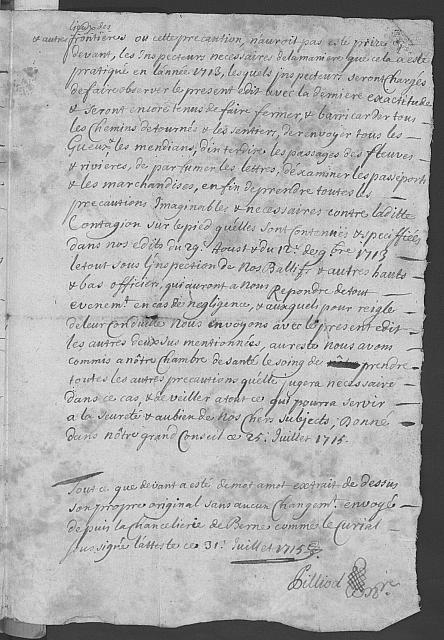 lieux des
& autres frontieres ou cette precaution, n'auroit pas esté prise cy
devant, les Inspecteurs necessaires de la maniere que cela a esté
pratiqué en l'année 1713, lesquels inspecteurs seront Chargés
de faire observer le present edit avec la derniere exactitude
& seront encore tenus de faire fermer, & barricarder tous
les Chemins detournés & les sentiers, de renvoyer tous les
Gueux, les mendians, d'interdire les passages des fleuves
& rivières, de parfumer les lettres, d'examiner les passeports
& les marchandises, en fin de prendre toutes les
precautions Imaginables & necessaires contre laditte
Contagion sur le pied qu'elles sont contenües & specifiées
dans nos edits du 29. Aoust & du 12.e 9bre 1713
le tout sous l'inspection de Nos Ballifs & autres hauts
& bas officiers, qui auront a Nous Repondre de tout
evenemt en cas de negligence, & auxquels pour reigle
de leur Conduite Nous envoyons avec le present edit
les autres dessus mentionnées, au reste nous avons
commis a nôtre Chambre de santé le soing de prendre
toutes les autres precautions qu'elle jugera necessaire
dans ce cas, & de veiller a tout ce qui pourra servir
a la seureté & au bien de Nos Chers subjects; Donné
dans nôtre grand Conseil ce 25. Juillet 1715.
Tout ce que devant a esté de mot a mot extrait de dessus
son propre original sans aucun Changemt envoyé
depuis la Chancelierie de Berne comme le Curial
soussigné l'atteste ce 31.e Juillet 1715
Pilliod